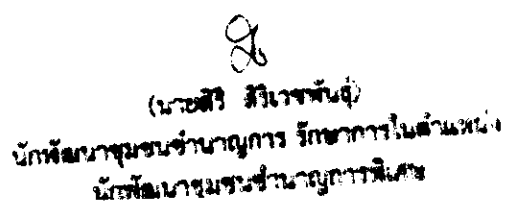 (นายศิริ ศิริเวชพันธุ์)
นักพัฒนาชุมชนชำนาญการ รักษาการในตำแหน่ง
นักพัฒนาชุมชนชำนาญการพิเศษ